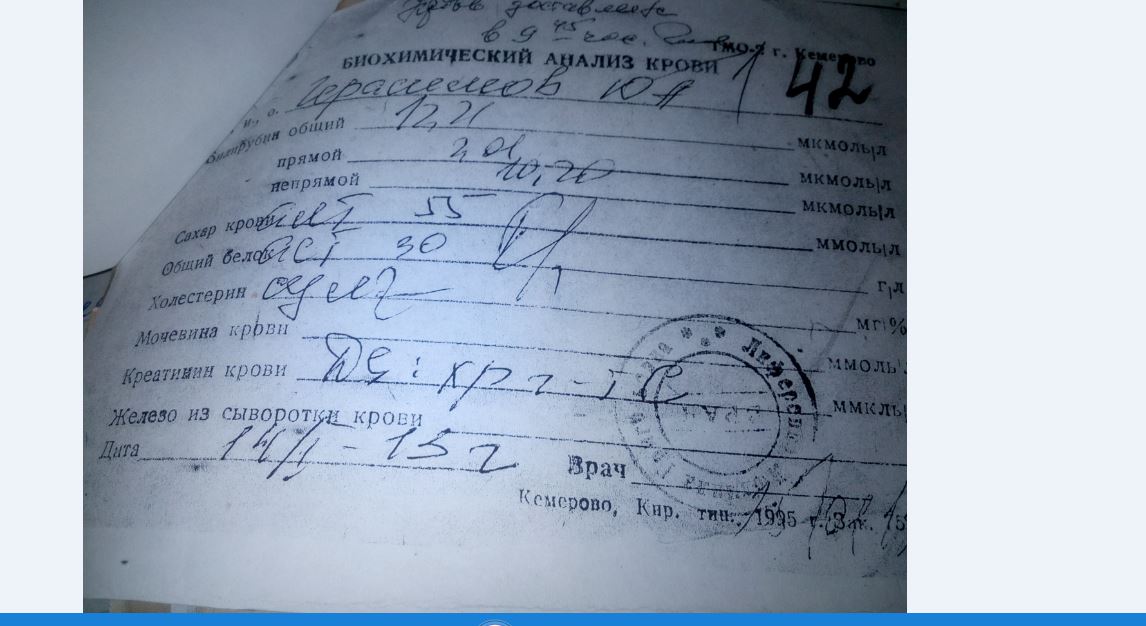 Кровь доставлена
в 9 45 час.
ТМО-2 г. Кемерово
БИОХИМИЧЕСКИЙ АНАЛИЗ КРОВИ 42
и., о. Герасимов Ю А
билирубин общий 12,21 мкмоль/л
прямой 2,01 мкмоль/л
непрямой 10,20 мкмоль/л
Сахар крови АЛТ 55 ммоль/л
Общий белок АСТ 30 г/л
Холестерин мг%
Мочевина крови ммоль/
Креатинин крови DS: хр г-т С ммкль/
Железо из сыворотки крови
Дата 14/I-15 г
Врач
Кемерово, Кир. тип. 1995 г. Зак. 15